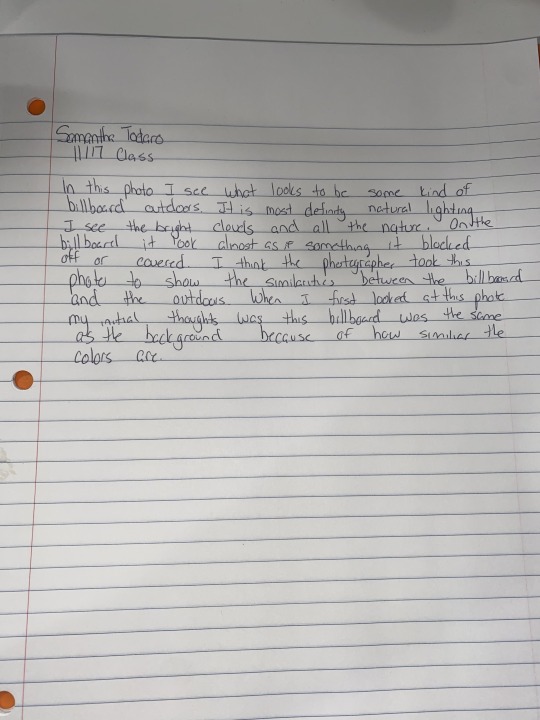 Samantha Todaro
11/17 Class
In this photo I see what looks to be some kind of
billboard outdoors. It is most definty natural lighting
I see the bright clouds and all the nature. On the
billboard it look almost as if something it blocked
off or covered. I think the photographer took this
photo to show the similarities between the billboard
and the outdoors. When I first looked at this photo
my initial thoughts was this billboard was the same
as the background because of how similiar the
colors are.